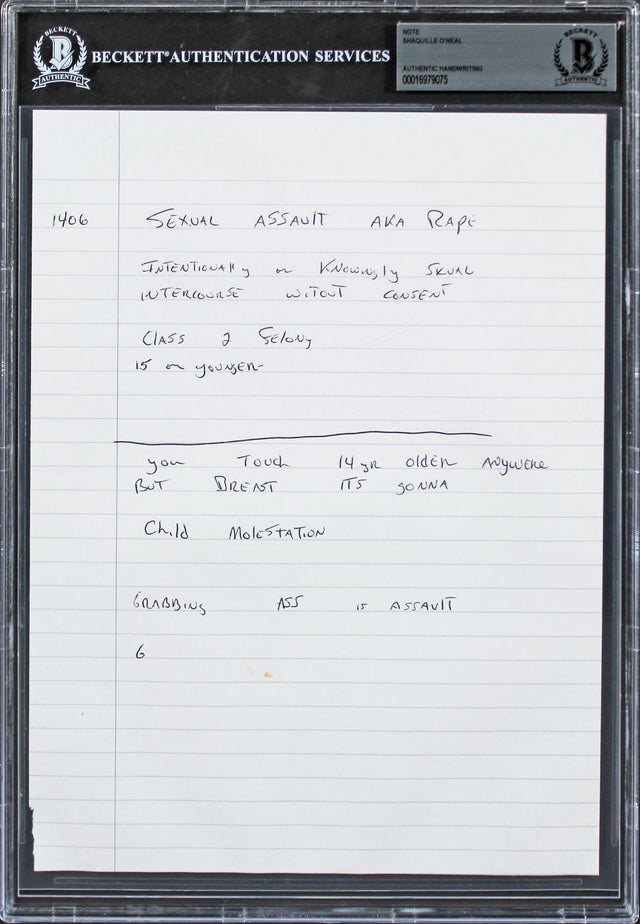 BECKETT
B
AUTHENTIC
BECKETT® AUTHENTICATION SERVICES
NOTE
SHAQUILLE O'NEAL
AUTHENTIC HANDWRITING
00016979075
BECKETT
B
AUTHENTIC
1406 SEXUAL ASSAULT AKA RAPE
INTENTIONALLY or KNOWINGLY SXUAL
INTERCOURSE WITOUT CONSENT
CLASS 2 FELONY
15 or YOUNGER
you Touch 14 yr OLDER ANYWERE
BUT BREAST ITS GONNA
Child MOLESTATION
GRABBING ASS is ASSAULT
6